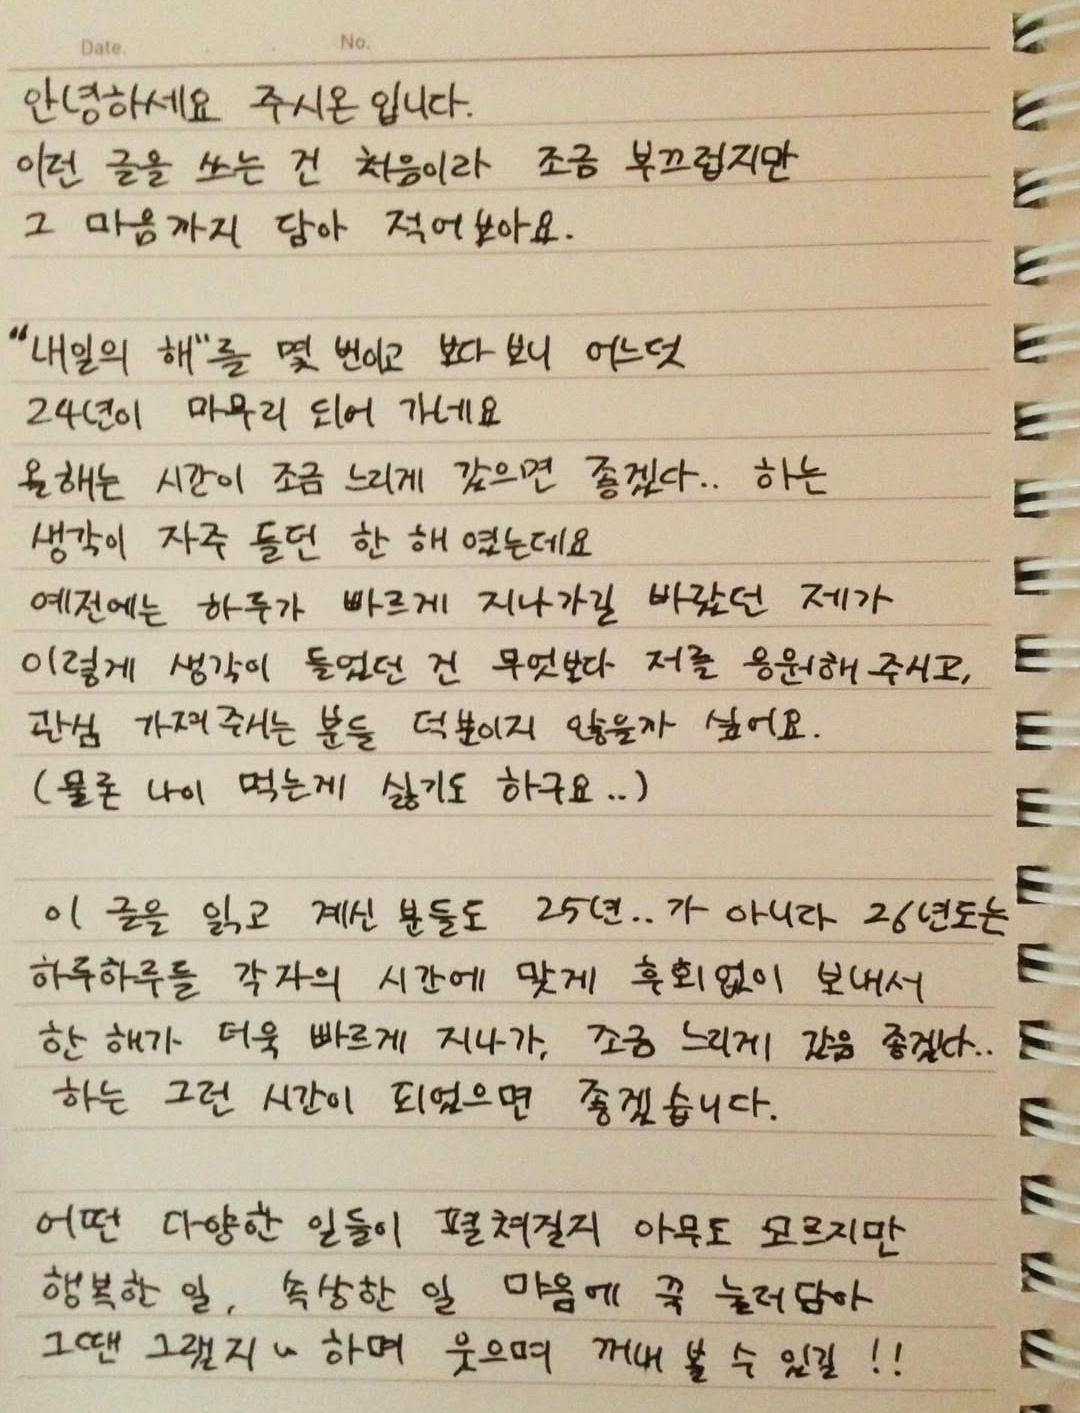 Date.
No.
안녕하세요 주시온입니다.
이런 글을 쓰는 건 처음이라 조금 부끄럽지만
그 마음까지 담아 적어보아요.
"내일의 해"를 몇 번이고 보다보니 어느덧
24년이 마무리 되어 가네요
올해는 시간이 조금 느리게 갔으면 좋겠다.. 하는
생각이 자주 들던 한 해 였는데요
예전에는 하루가 빠르게 지나가길 바랐던 제가
이렇게 생각이 들었던 건 무엇보다 저를 응원해 주시고,
관심 가져주시는 분들 덕분이지 않을까 싶어요.
(물론 나이 먹는게 싫기도 하구요..)
이 글을 읽고 계신 분들도 25년.. 가 아니라 26년도는
하루하루를 각자의 시간에 맞게 후회없이 보내서
한 해가 더욱 빠르게 지나가, 조금 느리게 갔음 좋겠다..
하는 그런 시간이 되었으면 좋겠습니다.
어떤 다양한 일들이 펼쳐질지 아무도 모르지만
행복한 일, 속상한 일 마음에 꾹 눌러담아
그땐 그랬지~ 하며 웃으며 꺼내 볼 수 있길!!